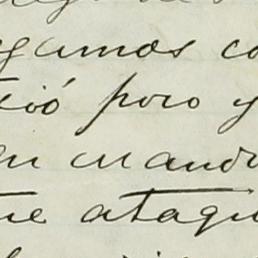 gamos co
tió poco y
en cuando
ue ataqu